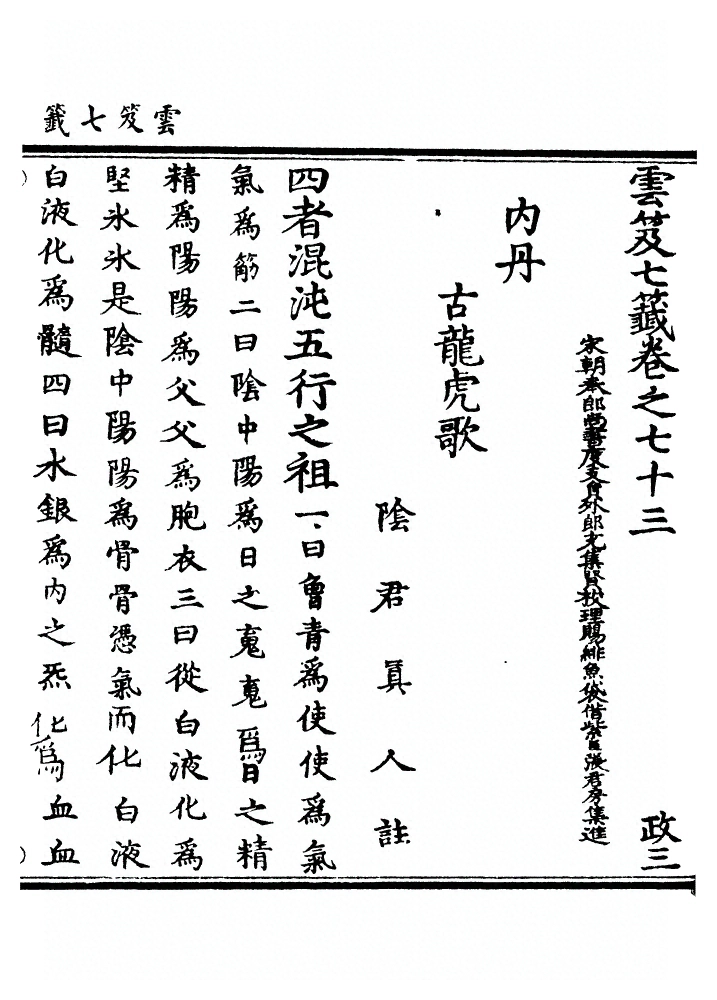 雲笈七籤
雲笈七籤卷之七十三
政三
宋朝奉郎尚書度支員外郎充集賢校理賜緋魚袋借紫臣張君房集進
内丹
古龍虎歌
陰君眞人註
四者混沌五行之祖一曰曾青爲使使爲氣
氣爲筋二曰陰中陽爲日之䰟䰟爲日之精
精爲陽陽爲父父爲胞衣三曰從白液化爲
堅氷氷是陰中陽陽爲骨骨憑氣而化白液
白液化爲髓四曰水銀爲内之炁化爲血血